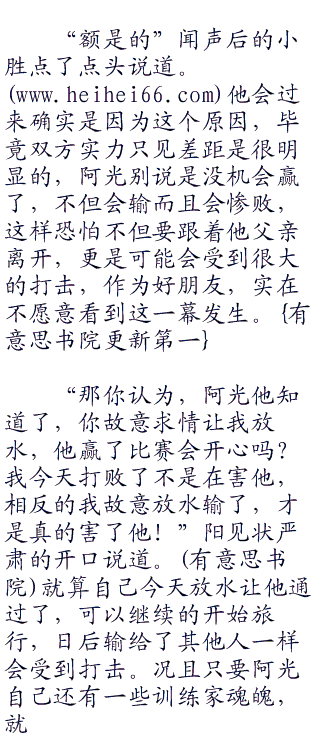 “额是的”闻声后的小
胜点了点头说道。
(www.heihei66.com)他会过
来确实是因为这个原因，毕
竟双方实力只见差距是很明
显的，阿光别说是没机会赢
了，不但会输而且会惨败，
这样恐怕不但要跟着他父亲
离开，更是可能会受到很大
的打击，作为好朋友，实在
不愿意看到这一幕发生。{有
意思书院更新第一}
“那你认为，阿光他知
道了，你故意求情让我放
水，他赢了比赛会开心吗？
我今天打败了不是在害他，
相反的我故意放水输了，才
是真的害了他！”阳见状严
肃的开口说道。(有意思书
院)就算自己今天放水让他通
过了，可以继续的开始旅
行，日后输给了其他人一样
会受到打击。况且只要阿光
自己还有一些训练家魂魄，
就